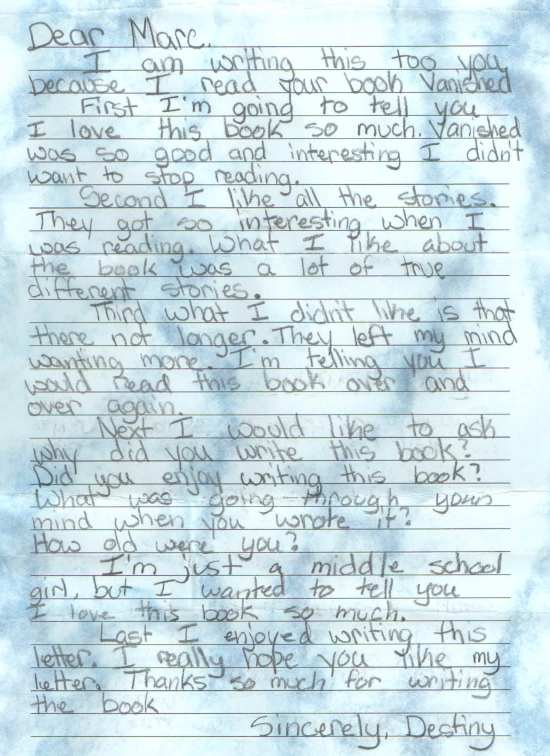 Dear Marc.
I am writing this too you
because I read your book Vanished
First I'm going to tell you
I love this book so much. Vanished
was so good and interesting I didn't
want to stop reading.
Second I like all the stories.
They got so interesting when I
was reading. What I like about
the book was a lot of true
different stories.
Third what I didn't like is that
there not longer. They left my mind
wanting more. I'm telling you I
would read this book over and
over again.
Next I would like to ask
why did you write this book?
Did you enjoy writing this book?
What was going through your
mind when you wrote it?
How old were you?
I'm just a middle school
girl, but I wanted to tell you
I love this book so much.
Last I enjoyed writing this
letter. I really hope you like my
letter. Thanks so much for writing
the book
Sincerely, Destiny